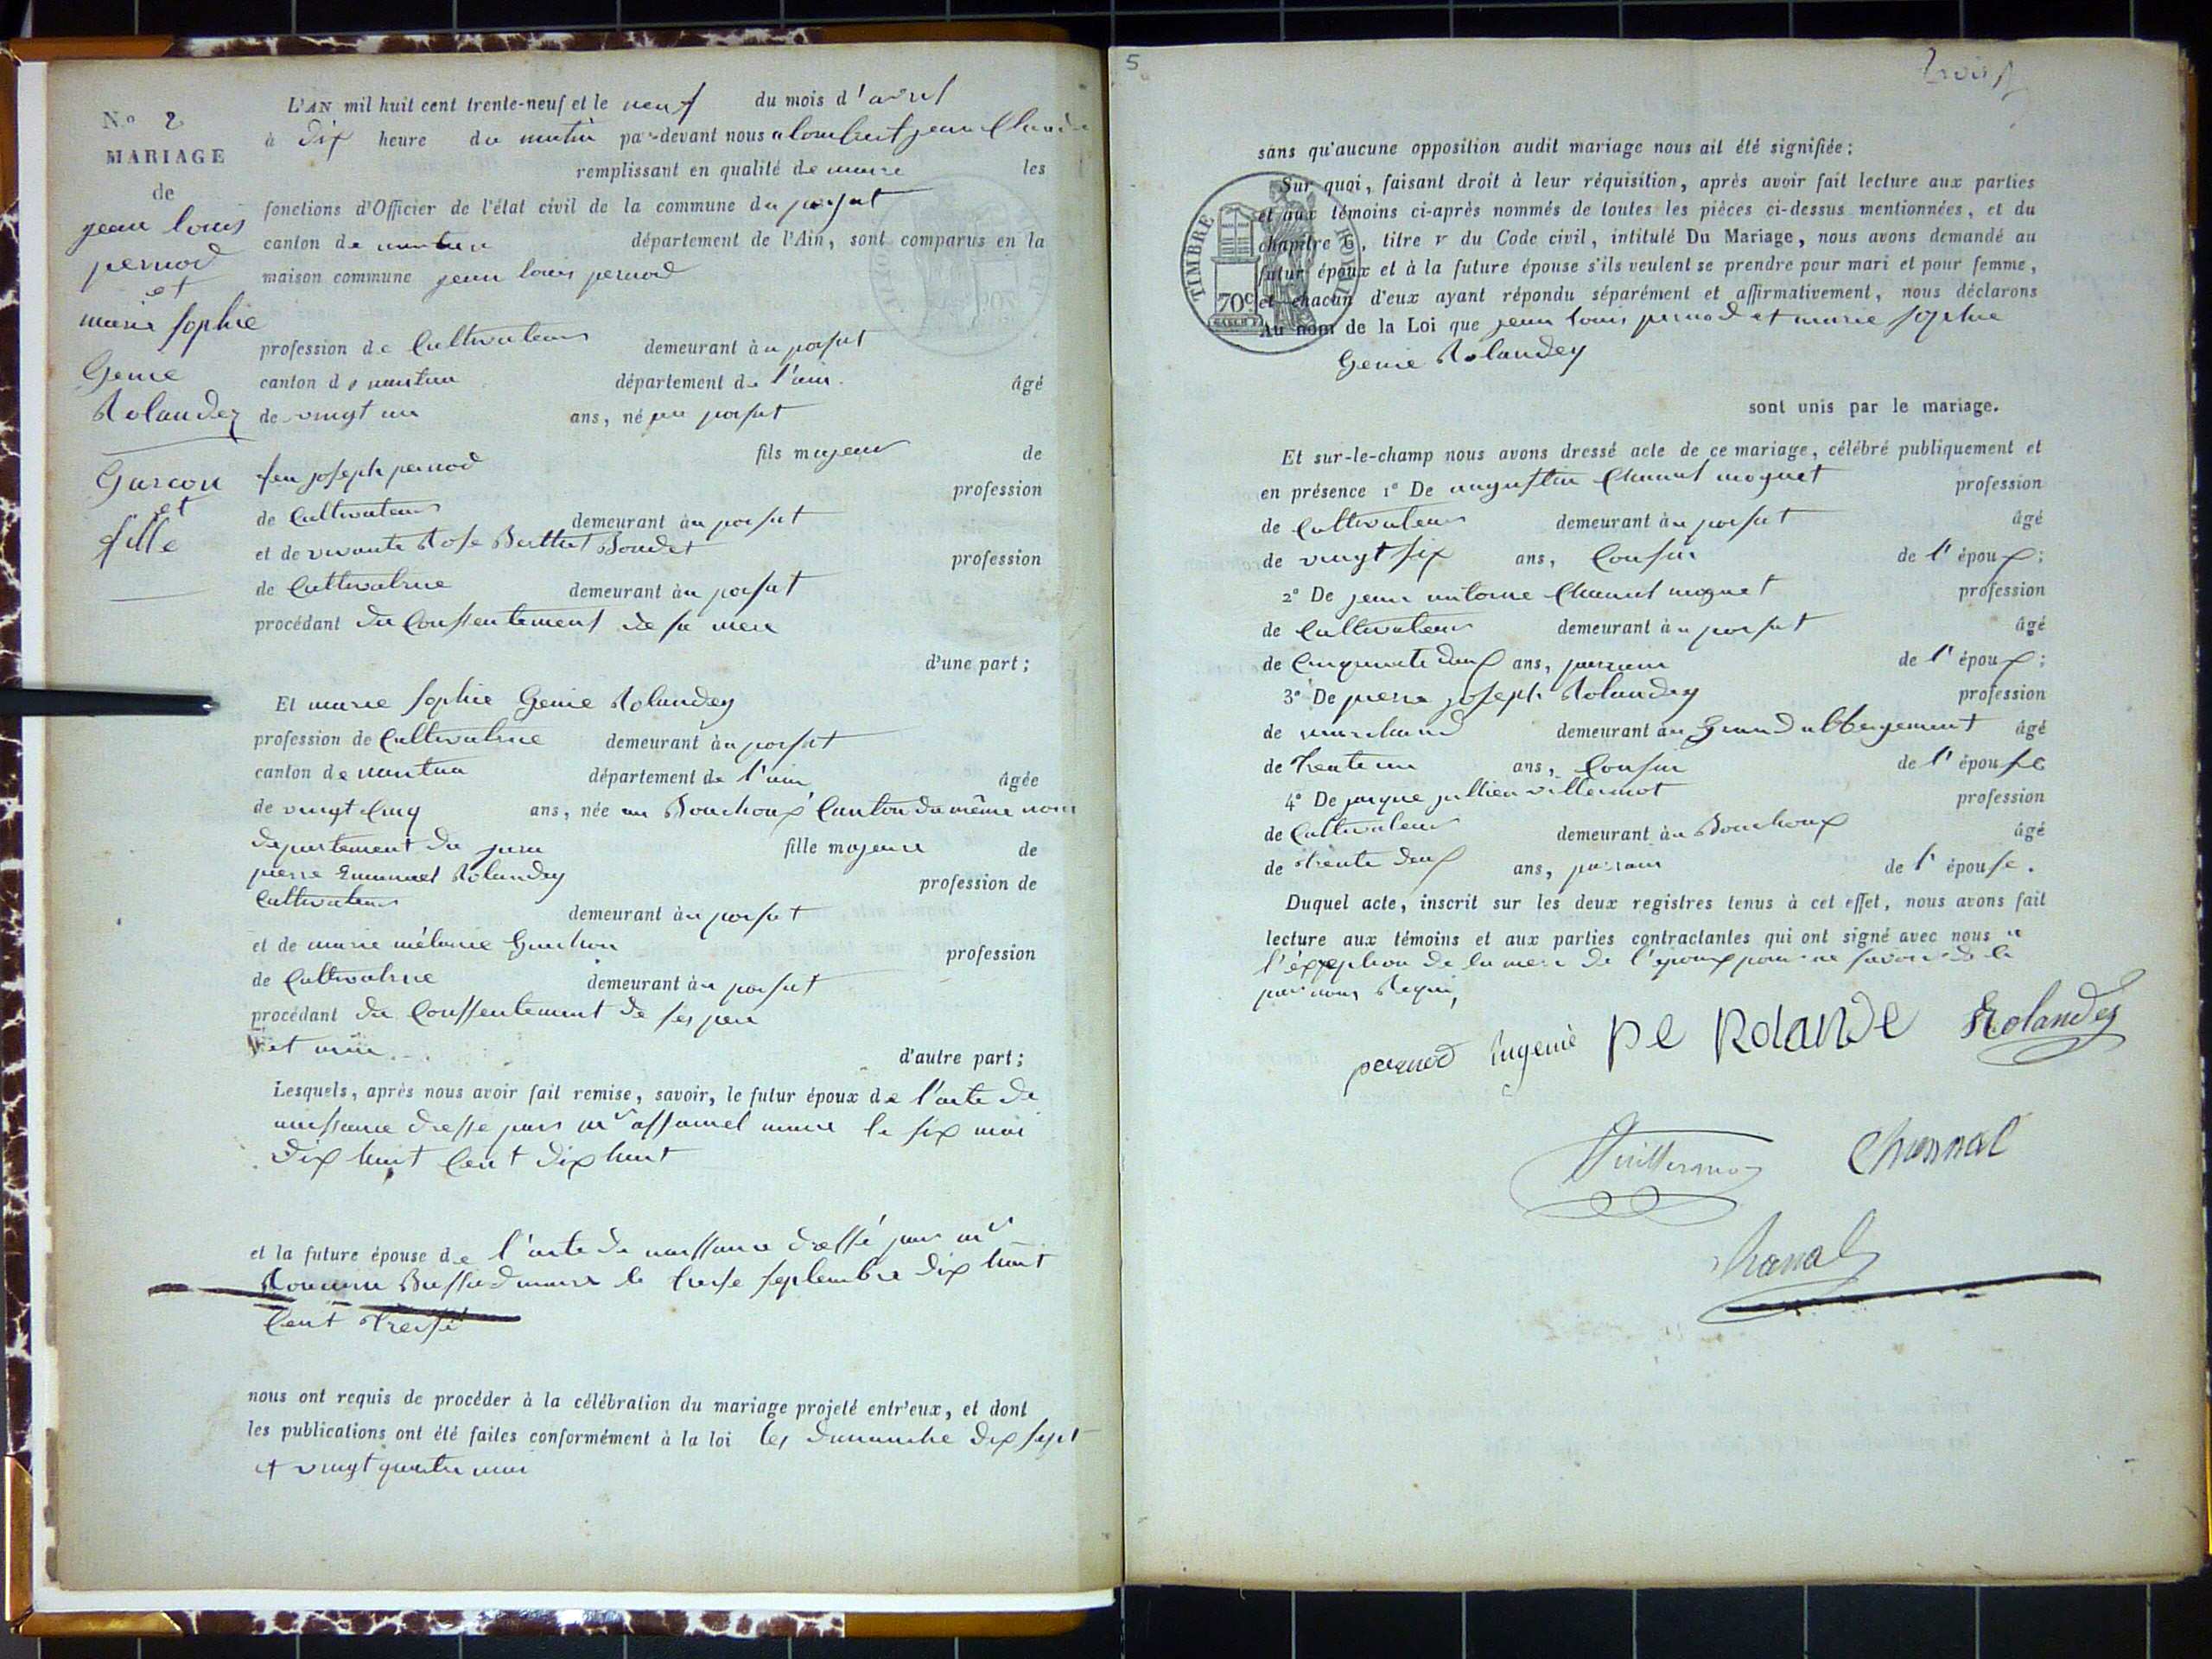 N.o 2
MARIAGE
de
jean louis
pernod
et
marie sophie
Genie
Rolandez
Garcon
et
fille
L'AN mil huit cent trente-neuf et le neuf du mois d'avril
à dix heure du matin par-devant nous alombert jean Claude
remplissant en qualité de maire les
fonctions d'Officier de l'état civil de la commune du poisat
canton de nantua département de l'Ain, sont comparus en la
maison commune jean louis pernod
profession de Cultivateur demeurant au poisat
canton de nantua département de l'ain âgé
de vingt un ans, né au poisat
fils majeur de
feu joseph pernod profession
de Cultivateur demeurant au poisat
et de vivante Rose Berthet Bondet profession
de Cultivatrice demeurant au poisat
procédant du Conssentement de sa mere
d'une part;
Et marie sophie Genie Rolandez
profession de Cultivatrice demeurant au poisat
canton de nantua département de l'ain âgée
de vingt Cinq ans, née au Bouchoux Canton du même nom
departement du jura fille majeure de
pierre Emanuel Rolandez profession de
Cultivateur demeurant au poisat
et de marie mélanie profession
de Cultivatrice demeurant au poisat
procédant du Conssentement de ses pere
et mère d'autre part;
Lesquels, après nous avoir fait remise, savoir, le futur époux de l'acte de
naissance dresse par mr maire le six mai
dix huit Cent dix huit
et la future épouse de l'acte de naissance dressé par mr
maire le treise septembre dix huit
Cent treise
nous ont requis de procéder à la célébration du mariage projeté entr'eux, et dont
les publications ont été faites conformément à la loi les dimanche dix sept
et vingt quatre
5
trois
sans qu'aucune opposition audit mariage nous ait été signifiée;
Sur quoi, faisant droit à leur réquisition, après avoir fait lecture aux parties
et aux témoins ci-après nommés de toutes les pièces ci-dessus mentionnées, et du
chapitre 6, titre v du Code civil, intitulé Du Mariage, nous avons demandé au
futur époux et à la future épouse s'ils veulent se prendre pour mari et pour femme,
et chacun d'eux ayant répondu séparément et affirmativement, nous déclarons
Au nom de la Loi que jean louis pernod et marie sophie
Genie Rolandez
sont unis par le mariage.
TIMBRE ROYAL
70c
Et sur-le-champ nous avons dressé acte de ce mariage, célébré publiquement et
en présence 1o De augustin Chanal moguet profession
de Cultivateur demeurant au poisat âgé
de vingt six ans, Cousin de l'époux;
2o De jean antoine Chanal moguet profession
de Cultivateur demeurant au poisat âgé
de Cinquante deux ans, parrain de l'époux;
3o De pierre joseph Rolandez profession
de marchand demeurant au Grand abbergement âgé
de trente un ans, Cousin de l'épouse
4o De jacque jullien villermot profession
de Cultivateur demeurant au Bouchoux âgé
de trente deux ans, parrain de l'épouse.
Duquel acte, inscrit sur les deux registres tenus à cet effet, nous avons fait
lecture aux témoins et aux parties contractantes qui ont signé avec nous a
l'exception de la mere de l'epoux pour ne savoir de ce
par nous Requi,
pernod Eugenie pe Rolande Rolandez
Vuillermoz Channal
Chanal